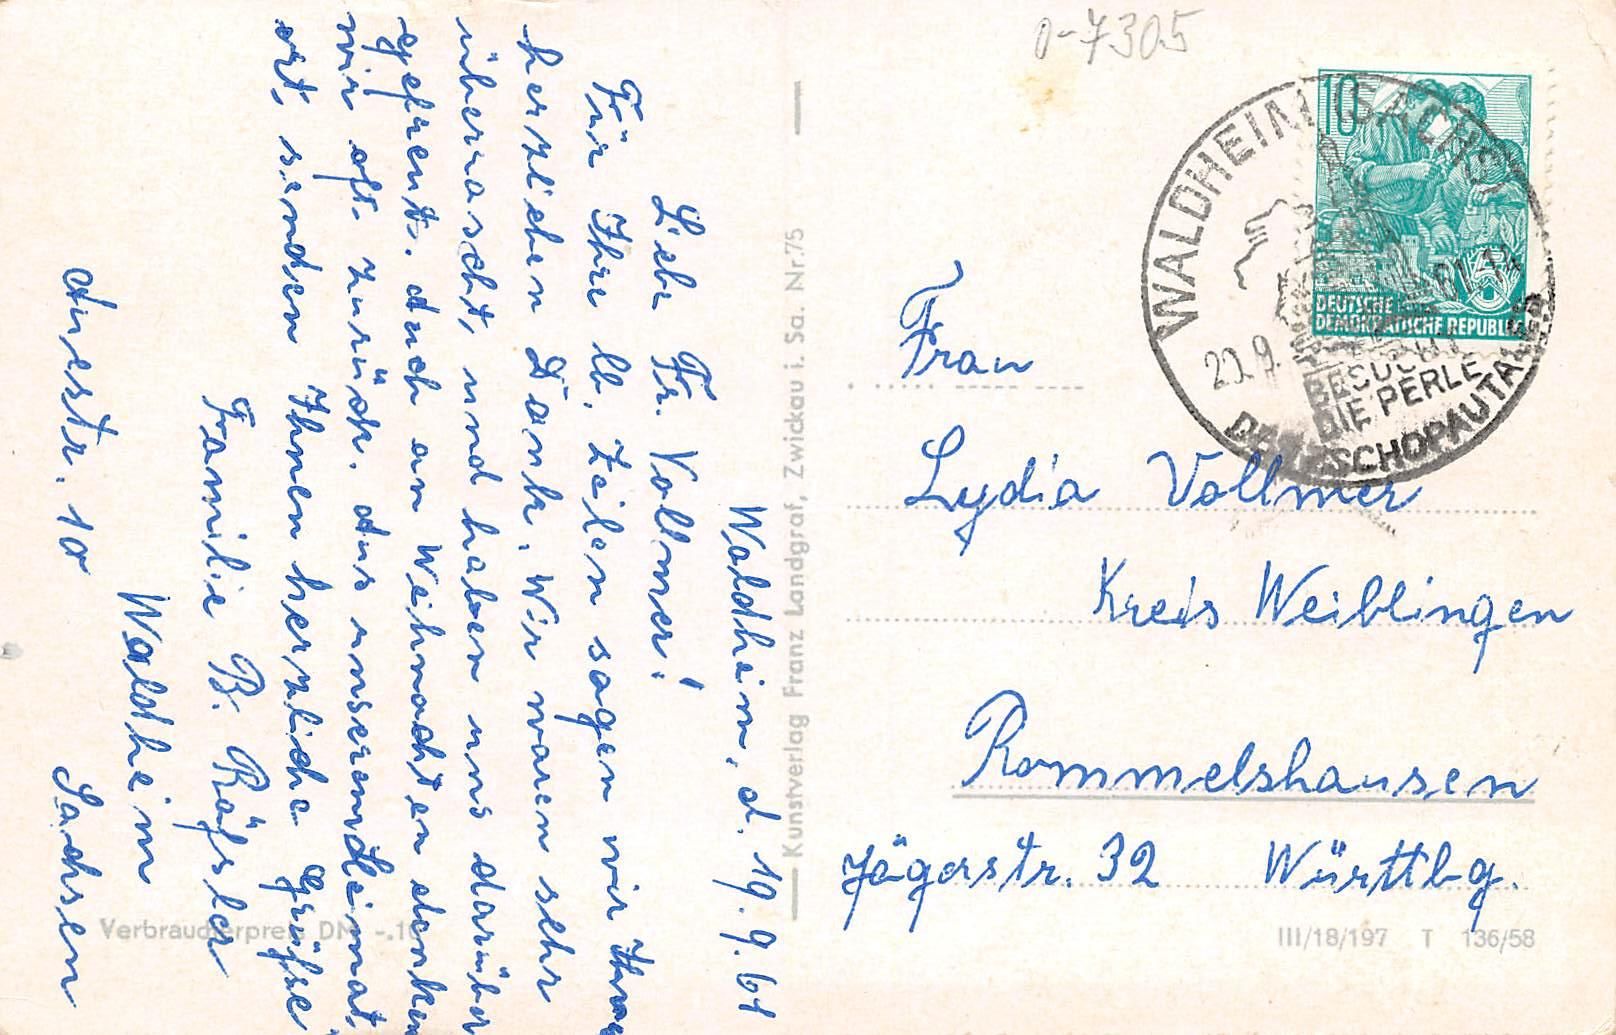 0-7305
Waldheim, d. 19.9.61
Liebe Fr. Vollmer!
Für Ihre lb. Zeilen sagen wir Ihnen
herzlichen Dank. Wir waren sehr
überrascht, und haben uns darüber
gefreut. Auch an Weihnachten denken
wir oft zurück. Aus unserem Heimat-
ort, senden Ihnen herzliche Grüße
Familie B.
Waldheim
Sachsen
Kunstverlag Franz Landgraf, Zwickau i. Sa. Nr. 75
Verbraucherpreis DM -.10
10
DEUTSCHE
DEMOKRATISCHE REPUBLIK
WALDHEIM (SACHS)
20.9.
BESUCHT
DIE PERLE
DES ZSCHOPAUTALES
Frau
Lydia Vollmer
Kreis Weiblingen
Rommelshausen
Jägerstr. 32 Württbg.
III/18/197 T 136/58